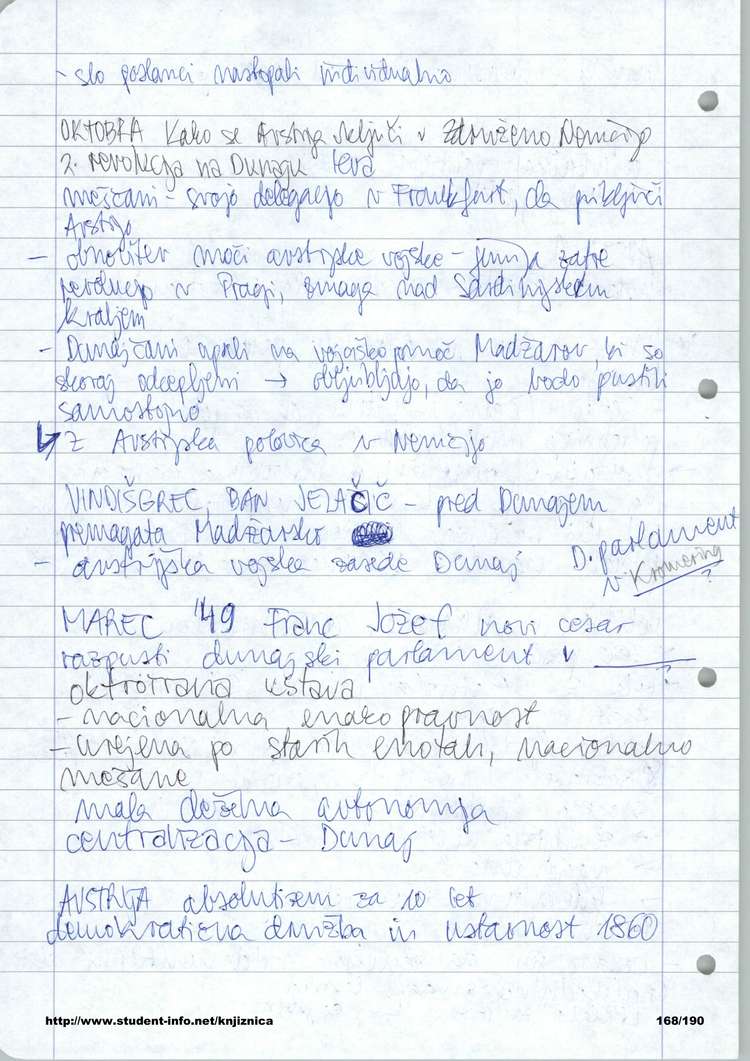 - slo poslanci nastopali individualno
OKTOBRA Kako se Avstrija vključi v Združeno Nemčijo
2. revolucija na Dunaju leva
meščani - svojo delegacijo v Frankfurt, da priključi
Avstrijo
- obnovitev moči avstrijske vojske - junija zatre
revolucijo v Pragi, zmaga nad Sardinijskim
kraljem
- Dunajčani upali na vojaško pomoč Madžarov, ki so
skoraj odcepljeni → obljubljajo, da jo bodo pustili
samostojno
↳ z Avstrijska polovica v Nemčijo
VINDIŠGREC, BAN JELAČIČ - pred Dunajem
premagata Madžarsko
- avstrijska vojska zasede Dunaj
D. parlament
v Kromering
?
MAREC '49 Franc Jožef novi cesar
razpusti dunajski parlament v ______
?
oktroirana ustava
- nacionalna enakopravnost
- urejena po starih enotah, nacionalno
mešane
mala deželna avtonomija
centralizacija - Dunaj
AVSTRIJA absolutizem za 10 let
demokratična družba in ustavnost 1860
http://www.student-info.net/knjiznica
168/190